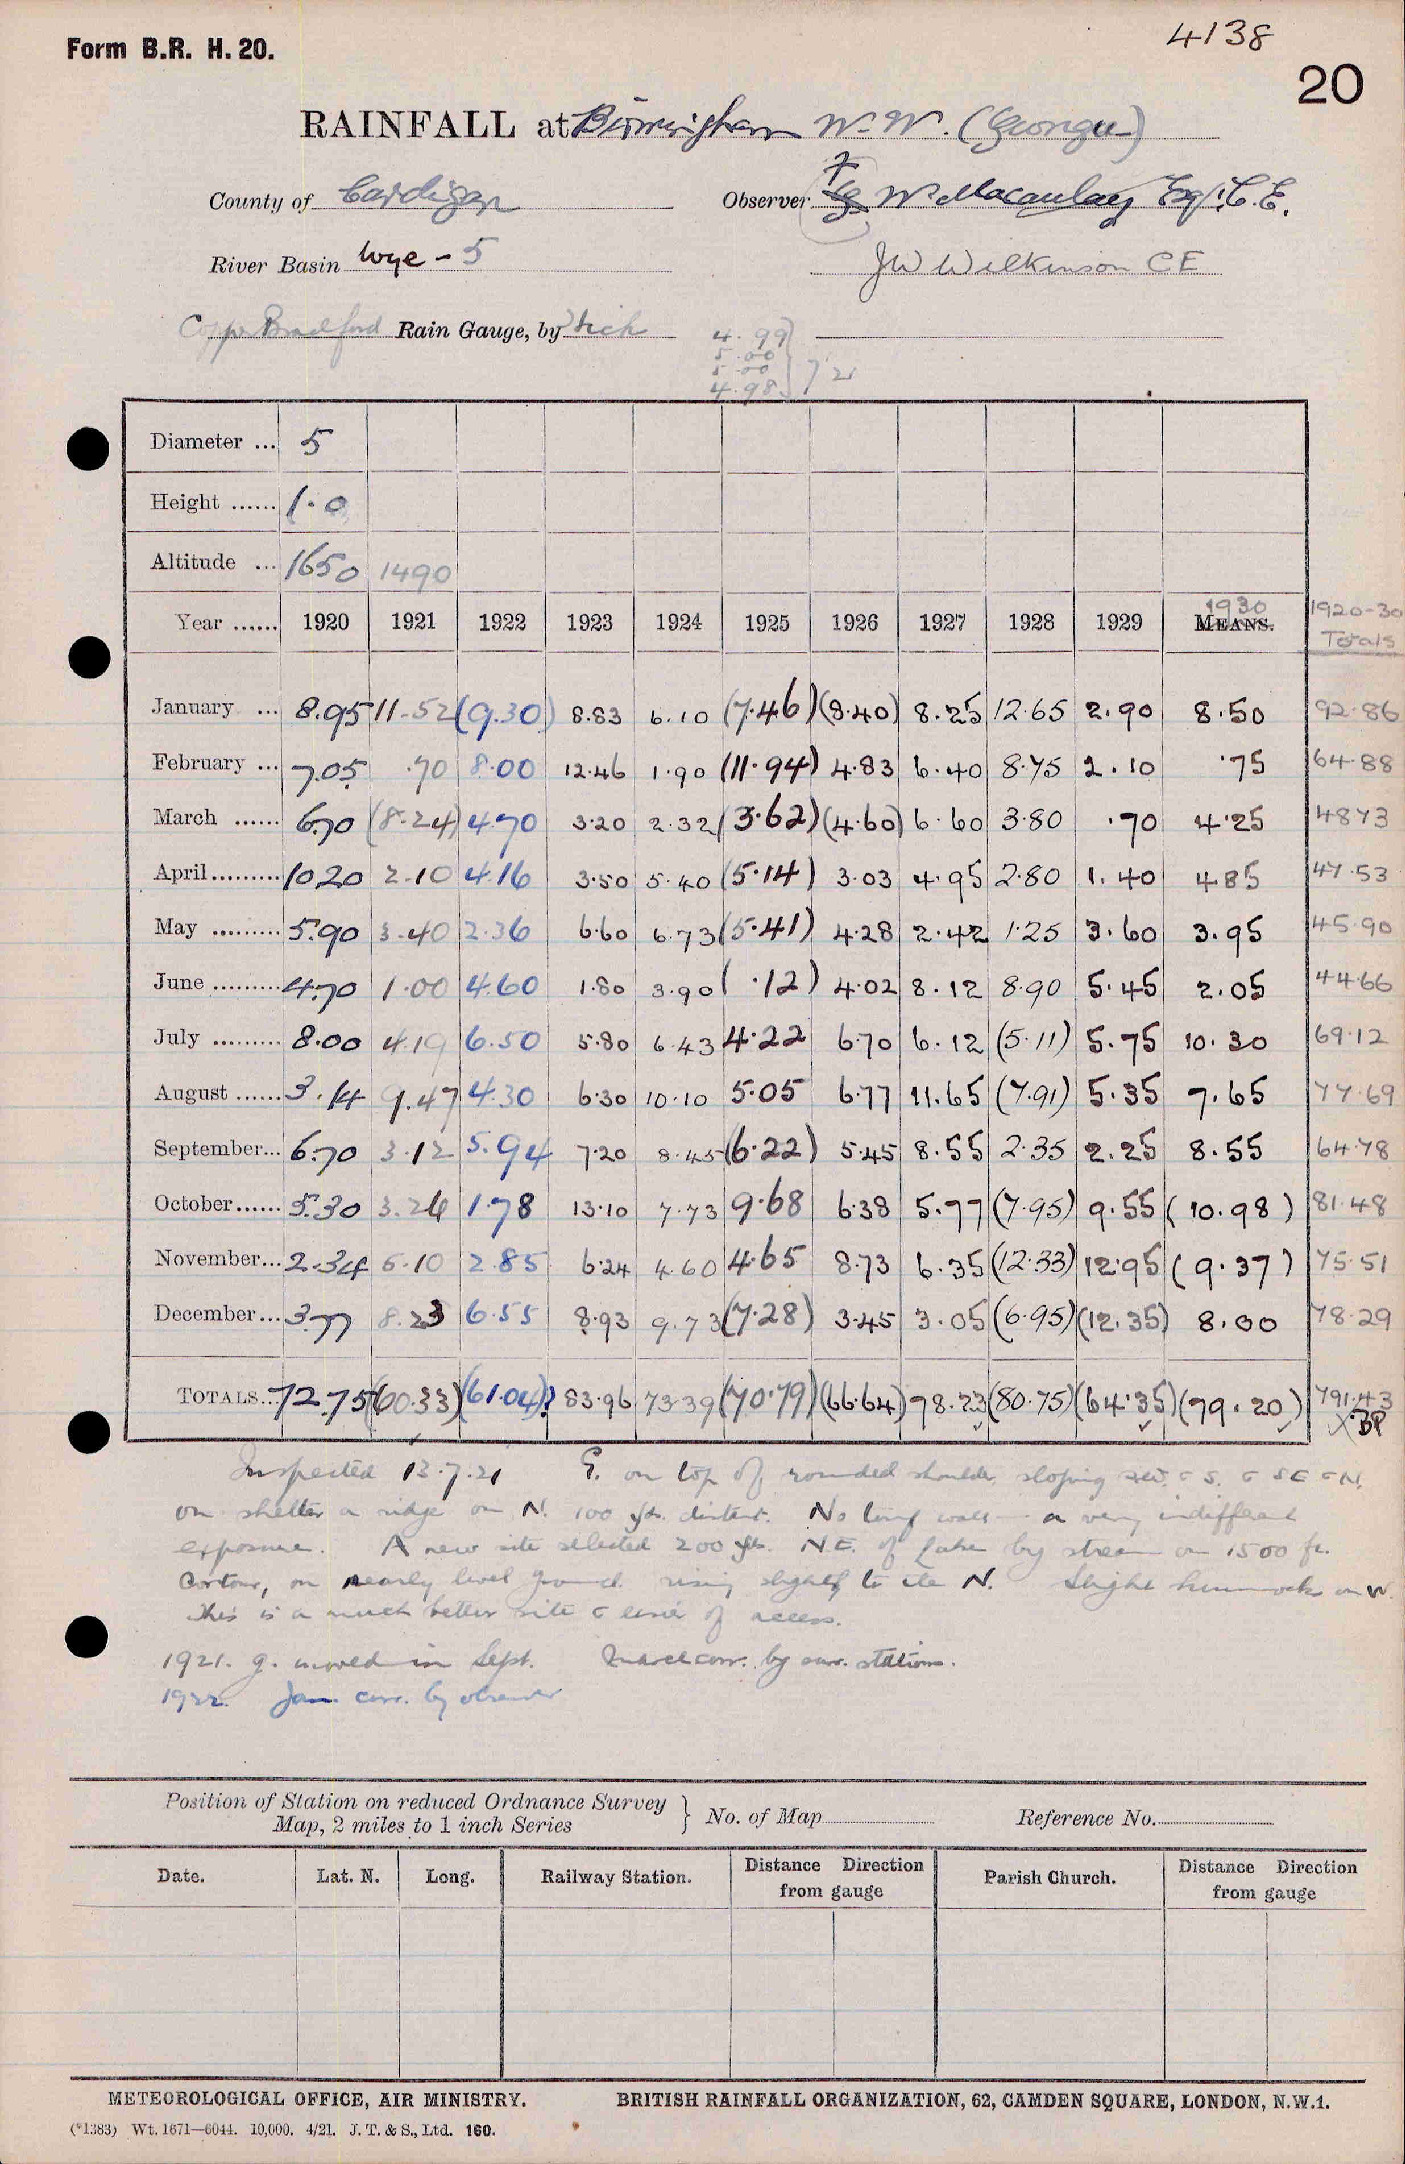 4138
Form B.R. H. 20.
20
RAINFALL at Birmingham W. W. (Gorngu)
County of Cardigan Observer W Macaulay Esq. C.E.
River Basin Wye - 5 JW Wilkinson CE
Copper Bradford Rain Gauge, by Stick
4.99
5.00
5.00 } 7 21
4.98
Diameter ... 5
Height ...... 1.0
Altitude ... 1650 1490
Year ...... 1920 1921 1922 1923 1924 1925 1926 1927 1928 1929 1930 MEANS. 1920-30 Totals
January ... 8.95 11.52 (9.30) 8.83 6.10 (7.46) (8.40) 8.25 12.65 2.90 8.50 92.86
February ... 7.05 .70 8.00 12.46 1.90 (11.94) 4.83 6.40 8.75 2.10 .75 64.88
March ...... 6.70 (8.24) 4.70 3.20 2.32 (3.62) (4.60) 6.60 3.80 .70 4.25 4873
April ......... 10.20 2.10 4.16 3.50 5.40 (5.14) 3.03 4.95 2.80 1.40 4.85 47.53
May ......... 5.90 3.40 2.36 6.60 6.73 (5.41) 4.28 2.42 1.25 3.60 3.95 45.90
June ......... 4.70 1.00 4.60 1.80 3.90 ( .12) 4.02 8.12 8.90 5.45 2.05 44.66
July ......... 8.00 4.19 6.50 5.80 6.43 4.22 6.70 6.12 (5.11) 5.75 10.30 69.12
August ...... 3.14 9.47 4.30 6.30 10.10 5.05 6.77 11.65 (7.91) 5.35 7.65 77.69
September... 6.70 3.12 5.94 7.20 8.45 (6.22) 5.45 8.55 2.35 2.25 8.55 64.78
October...... 5.30 3.26 1.78 13.10 7.73 9.68 6.38 5.77 (7.95) 9.55 (10.98) 81.48
November... 2.34 5.10 2.85 6.24 4.60 4.65 8.73 6.35 (12.33) 12.95 (9.37) 75.51
December... 3.77 8.23 6.55 8.93 9.73 (7.28) 3.45 3.05 (6.95) (12.35) 8.00 78.29
TOTALS... 72.75 (60.33) (61.04)? 83.96 73.39 (70.79) (66.64) 78.23 (80.75) (64.35) (79.20) 791.43
X BP
Inspected 13.7.21 G. on top of rounded shoulder sloping
on shelter a ridge on N. 100 yds. distant. No turf wall — a very indifferent
exposure. A new site selected 200 yds. N.E. of Lake by stream on 1500 ft.
Contour, on nearly level ground rising slightly to the N. Slight hummocks on W.
This is a much better site & easier of access.
1921. g. moved in Sept. March corr. by surr. stations.
1922. Jan. corr. by observer
Position of Station on reduced Ordnance Survey
Map, 2 miles to 1 inch Series } No. of Map Reference No.
Date. Lat. N. Long. Railway Station. Distance Direction from gauge Parish Church. Distance Direction from gauge
METEOROLOGICAL OFFICE, AIR MINISTRY. BRITISH RAINFALL ORGANIZATION, 62, CAMDEN SQUARE, LONDON, N.W.1.
(*1383) Wt. 1671—6044. 10,000. 4/21. J. T. & S., Ltd. 160.